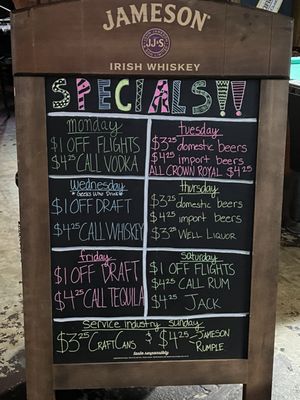 JAMESON
JJ&S
IRISH WHISKEY
SPECIALS!!
monday
$1 OFF FLIGHTS
$4.25 CALL VODKA
tuesday
$3.25 domestic beers
$4.25 import beers
ALL CROWN ROYAL $4.25
wednesday
Geeks Who Drink
$1 OFF DRAFT
$4.25 CALL WHISKEY
thursday
$3.25 domestic beers
$4.25 import beers
$3.25 WELL LIQUOR
friday
$1 OFF DRAFT
$4.25 CALL TEQUILA
Saturday
$1 OFF FLIGHTS
$4.25 CALL RUM
$4.25 JACK
Service industry Sunday
$3.25 CRAFT CANS & $4.25 JAMESON
RUMPLE
taste responsibly